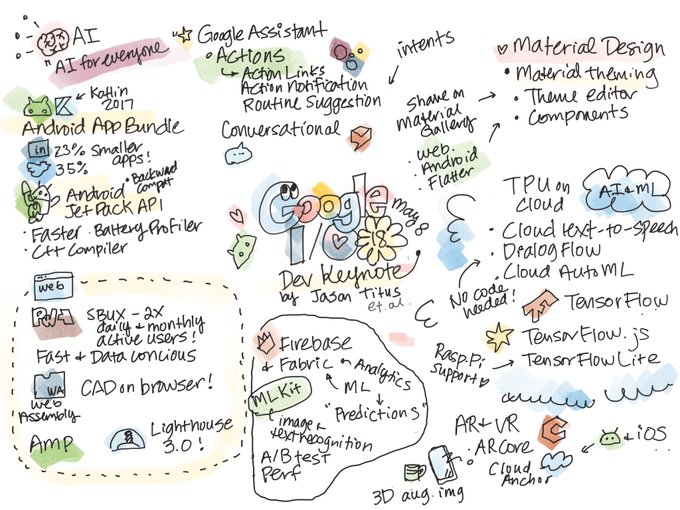 AI
"AI for everyone"
Kotlin
2017
Android App Bundle
in 23% smaller
apps!
35%
• Backward
compat
Android
JetPack API
• Faster • Battery Profiler
• C++ Compiler
Google Assistant
• Actions
Action Links
Action Notification
Routine Suggestion
Conversational
intents
Material Design
• Material theming
• Theme editor
• Components
Share on
Material
Gallery
• web
• Android
• Flutter
Google
I/O 18
may 8
Dev Keynote
by Jason Titus
et.al.
TPU on
Cloud
AI & ML
• Cloud text-to-speech
• DialogFlow
• Cloud AutoML
No code
needed!
TensorFlow
TensorFlow.js
TensorFlow Lite
Rasp.Pi
support
web
PWA
SBUX - 2X
daily & monthly
active users!
Fast & Data concious
WA
Web
Assembly
CAD on browser!
AMP
Lighthouse
3.0!
Firebase
& Fabric
Analytics
ML
"Predictions"
ML Kit
image &
text recognition
A/B test
Perf
AR & VR
• ARCore
Cloud
Anchor
& iOS
3D aug. img